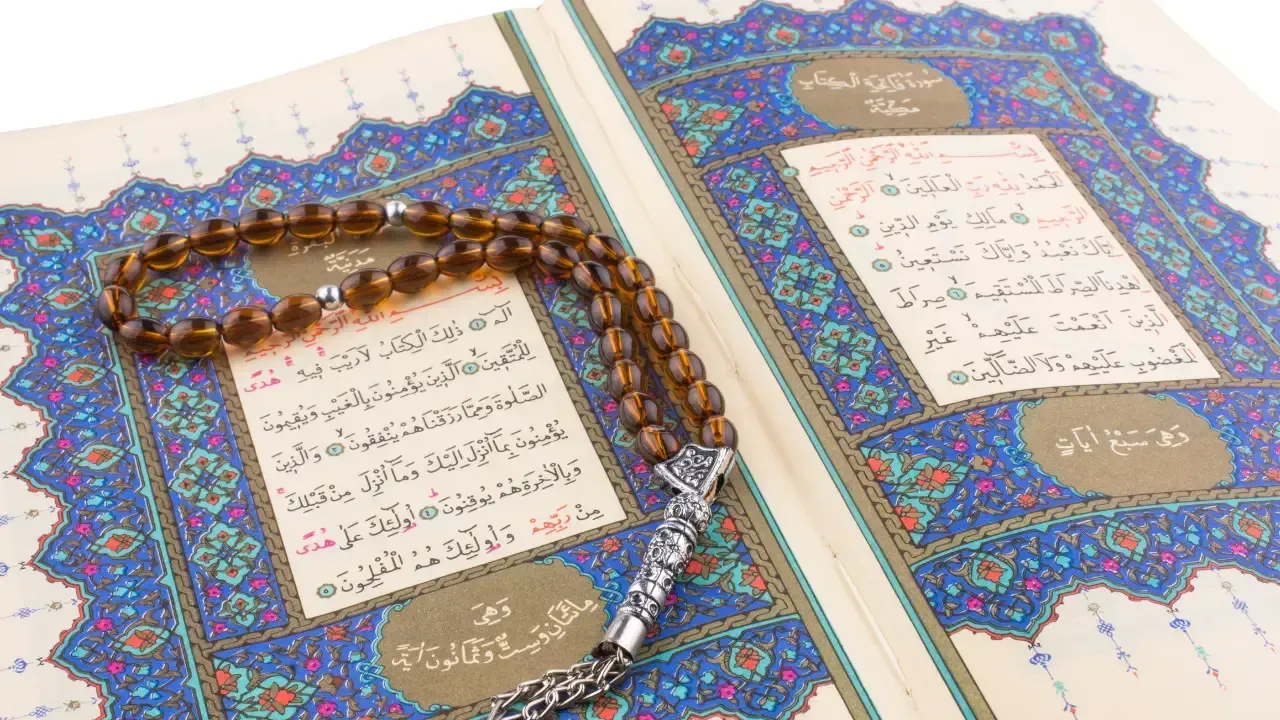 سُورَةُ فَاتِحَةِ الْكِتَابِ
مَكِّيَّةٌ
بِسْــــمِ اللهِ الرَّحْمٰنِ الرَّحِيمِ
اَلْحَمْدُ لِلّٰهِ رَبِّ الْعَالَمِينَ ١ اَلرَّحْمٰنِ
الرَّحِيمِ ٢ مَالِكِ يَوْمِ الدِّينِ
اِيَّاكَ نَعْبُدُ وَاِيَّاكَ نَسْتَعِينُ ٥
اِهْدِنَا الصِّرَاطَ الْمُسْتَقِيمَ ٦ صِرَاطَ
الَّذِينَ اَنْعَمْتَ عَلَيْهِمْ غَيْرِ
الْمَغْضُوبِ عَلَيْهِمْ وَلَا الضَّالِّينَ ٧
وَهِيَ سَبْعُ اٰيَاتٍ
مَدَنِيَّةٌ
بِسْــــمِ اللهِ الرَّحْمٰنِ الرَّحِيمِ
الٓمٓ ١ ذٰلِكَ الْكِتَابُ لَا رَيْبَ فِيهِ هُدًى
لِلْمُتَّقِينَ ٢ اَلَّذِينَ يُؤْمِنُونَ بِالْغَيْبِ وَيُقِيمُونَ
الصَّلٰوةَ وَمِمَّا رَزَقْنَاهُمْ يُنْفِقُونَ ٣ وَالَّذِينَ
يُؤْمِنُونَ بِمَا اُنْزِلَ اِلَيْكَ وَمَا اُنْزِلَ مِنْ قَبْلِكَ
وَبِالْاٰخِرَةِ هُمْ يُوقِنُونَ ٤ اُولٰئِكَ عَلٰى هُدًى
مِنْ رَبِّهِمْ وَاُولٰئِكَ هُمُ الْمُفْلِحُونَ ٥
وَهِيَ
مِائَتَانِ وَسِتٌّ وَثَمَانُونَ اٰيَةً